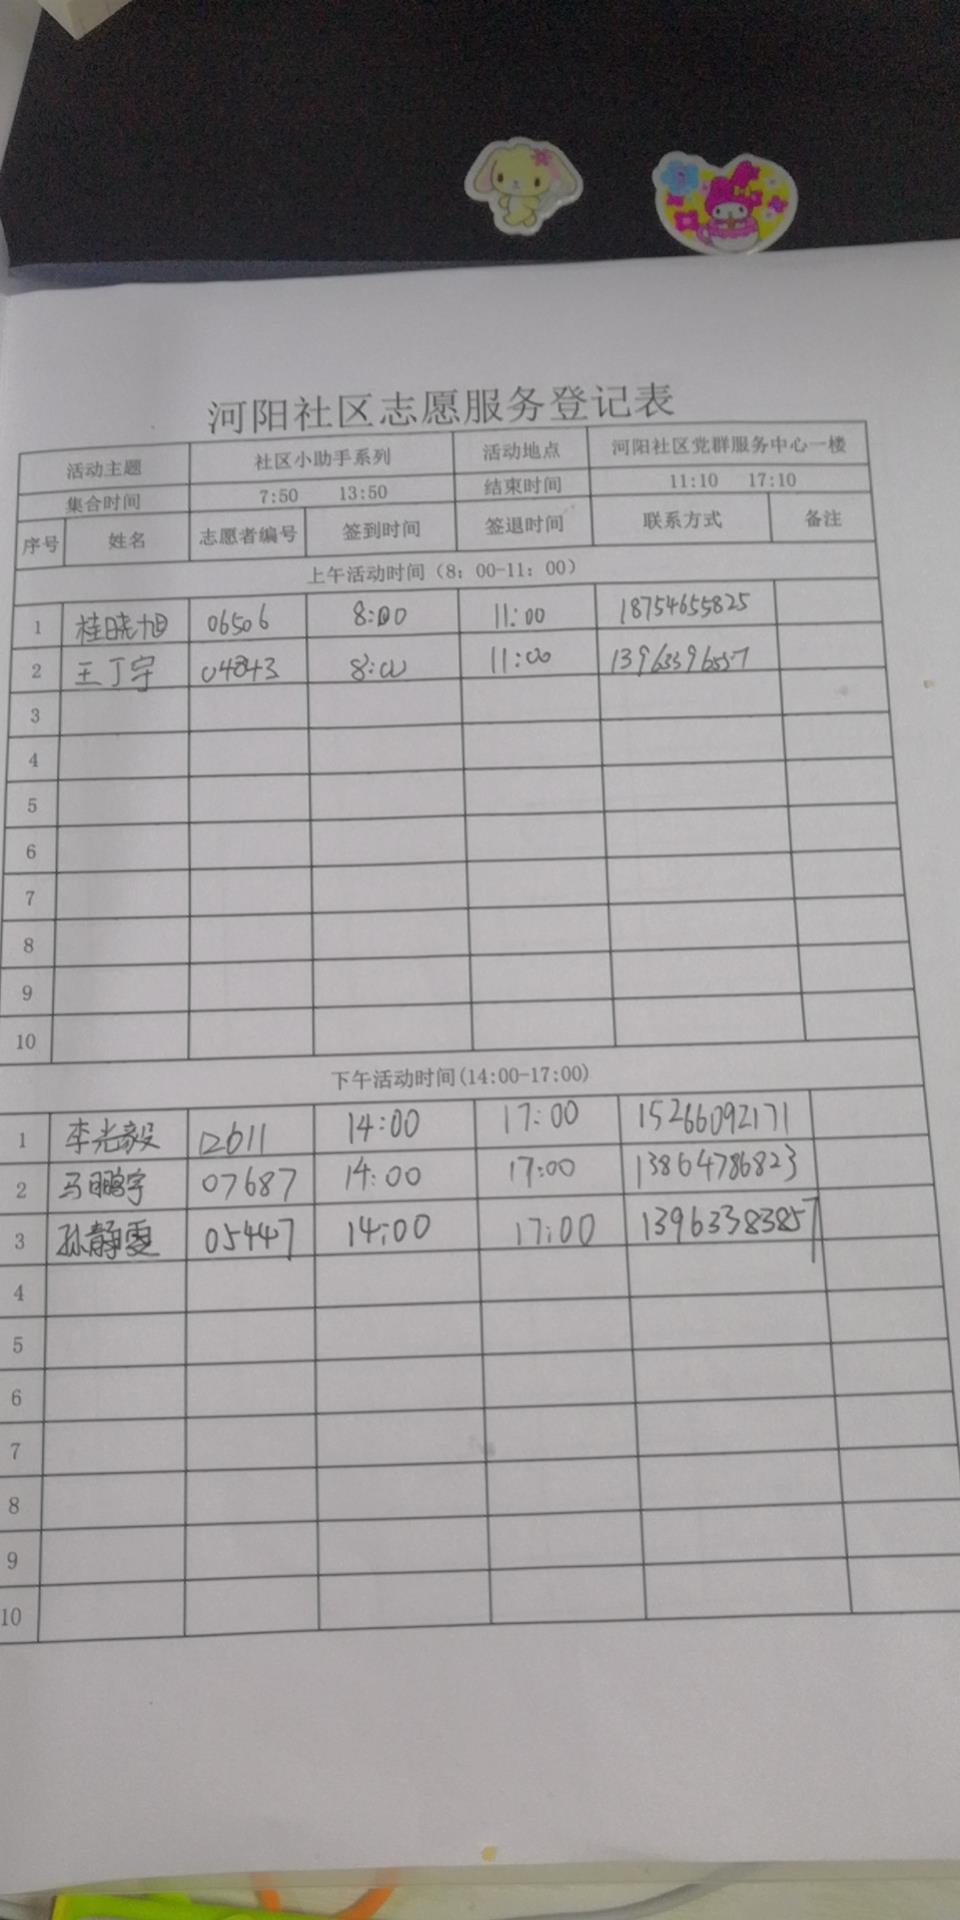 河阳社区志愿服务登记表
活动主题 社区小助手系列 活动地点 河阳社区党群服务中心一楼
集合时间 7:50 13:50 结束时间 11:10 17:10
序号 姓名 志愿者编号 签到时间 签退时间 联系方式 备注
上午活动时间（8：00-11：00）
1 桂晓旭 06506 8:00 11:00 18754655825
2 王丁宇 04843 8:00 11:00
3
4
5
6
7
8
9
10
下午活动时间(14:00-17:00)
1 李光毅 12611 14:00 17:00 15266092171
2 马鹏宇 07687 14:00 17:00 13864786823
3 孙静雯 05447 14:00 17:00 13963383857
4
5
6
7
8
9
10